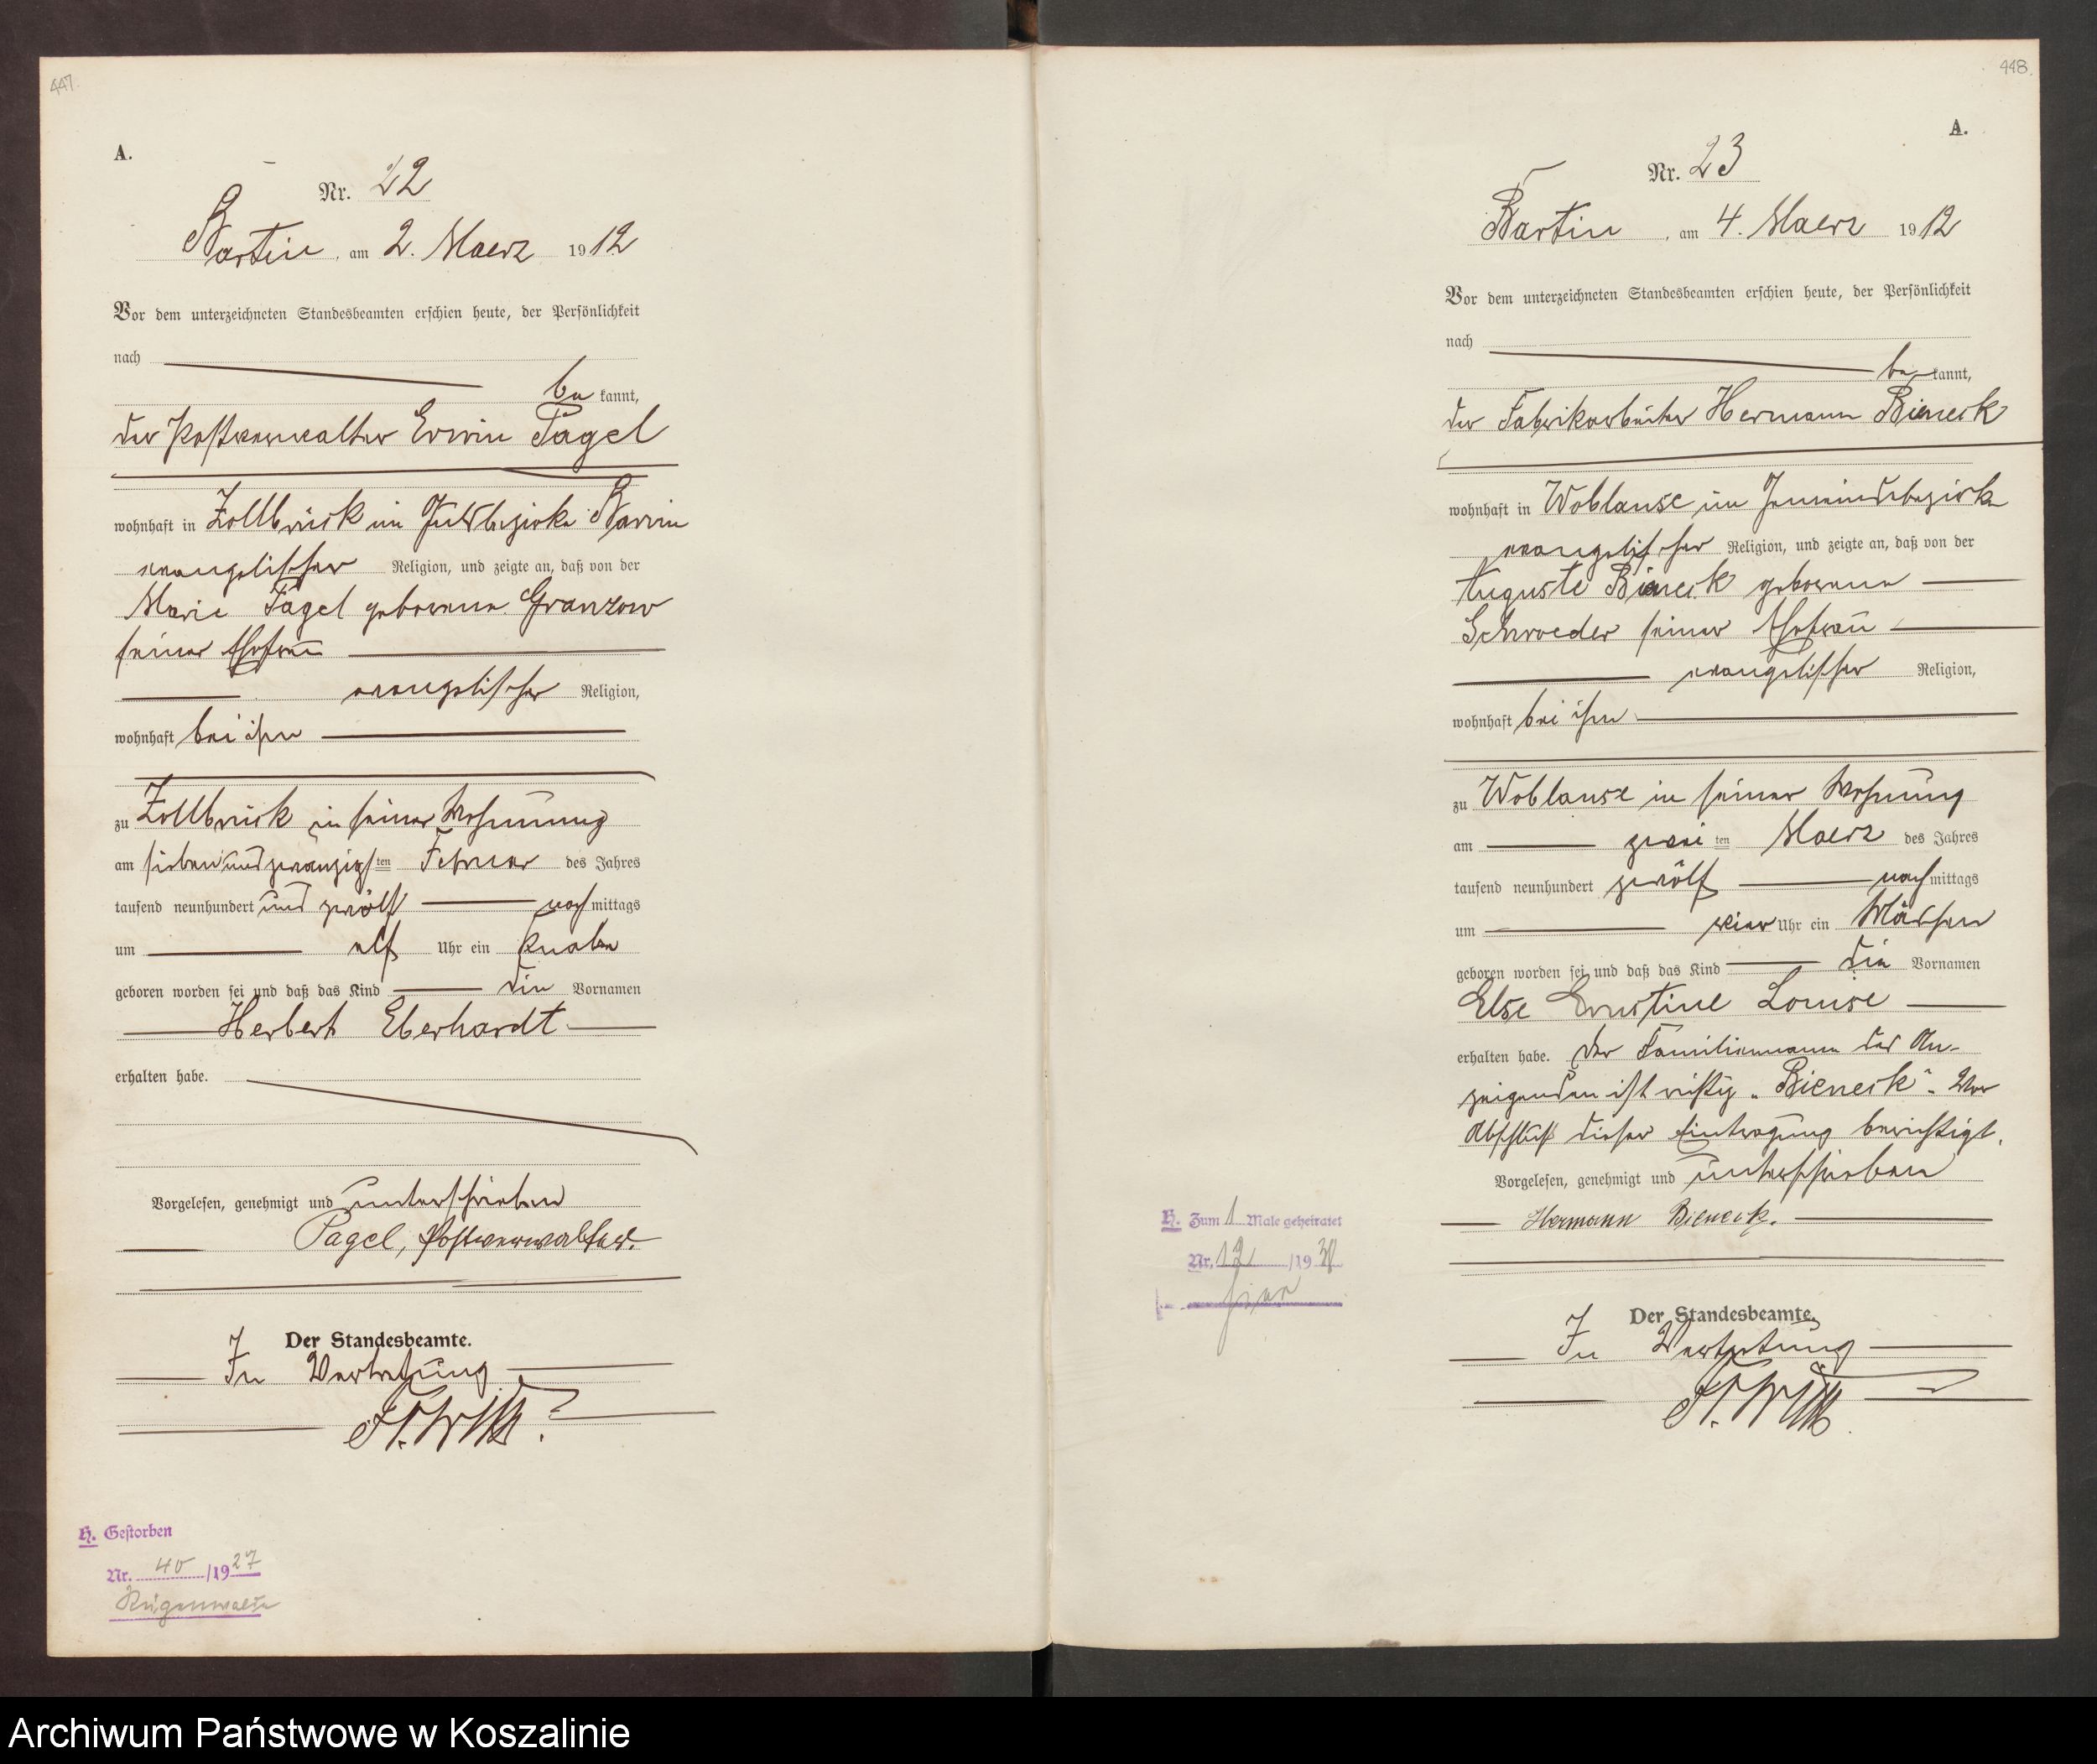 447.
A.
Nr. 22
Bartin, am 2. Maerz 1912
Vor dem unterzeichneten Standesbeamten erschien heute, der Persönlichkeit
nach
be kannt,
der Postverwalter Erwin Pagel
wohnhaft in Zollbrück im Gutsbezirke Barvin
evangelischer Religion, und zeigte an, daß von der
Marie Pagel geborene Granzow
seiner Ehefrau
evangelischer Religion,
wohnhaft bei ihm
zu Zollbrück in seiner Wohnung
am sieben und zwanzigsten Februar des Jahres
tausend neunhundert und zwölf nachmittags
um elf Uhr ein Knabe
geboren worden sei und daß das Kind die Vornamen
Herbert Eberhardt
erhalten habe.
Vorgelesen, genehmigt und unterschrieben
Pagel, Postverwalter.
Der Standesbeamte.
In Vertretung
H. Gestorben
Nr. 40 /1927
Rügenwalde
448.
A.
Nr. 23
Bartin, am 4. Maerz 1912
Vor dem unterzeichneten Standesbeamten erschien heute, der Persönlichkeit
nach
be kannt,
der Fabrikarbeiter Hermann Bieneck
wohnhaft in Woblanse im Gemeindebezirke
evangelischer Religion, und zeigte an, daß von der
Auguste Bieneck geborene
Schroeder seiner Ehefrau
evangelischer Religion,
wohnhaft bei ihm
zu Woblanse in seiner Wohnung
am zweiten Maerz des Jahres
tausend neunhundert zwölf nachmittags
um vier Uhr ein Mädchen
geboren worden sei und daß das Kind die Vornamen
Else Ernstine Louise
erhalten habe. Der Familienname des An-
zeigenden ist richtig „Bieneck“. Vor
Abschluß dieser Eintragung berichtigt.
Vorgelesen, genehmigt und unterschrieben
Hermann Bieneck.
H. Zum 1 Male geheiratet
Nr. 12 /19
hier
Der Standesbeamte.
In Vertretung
Archiwum Państwowe w Koszalinie